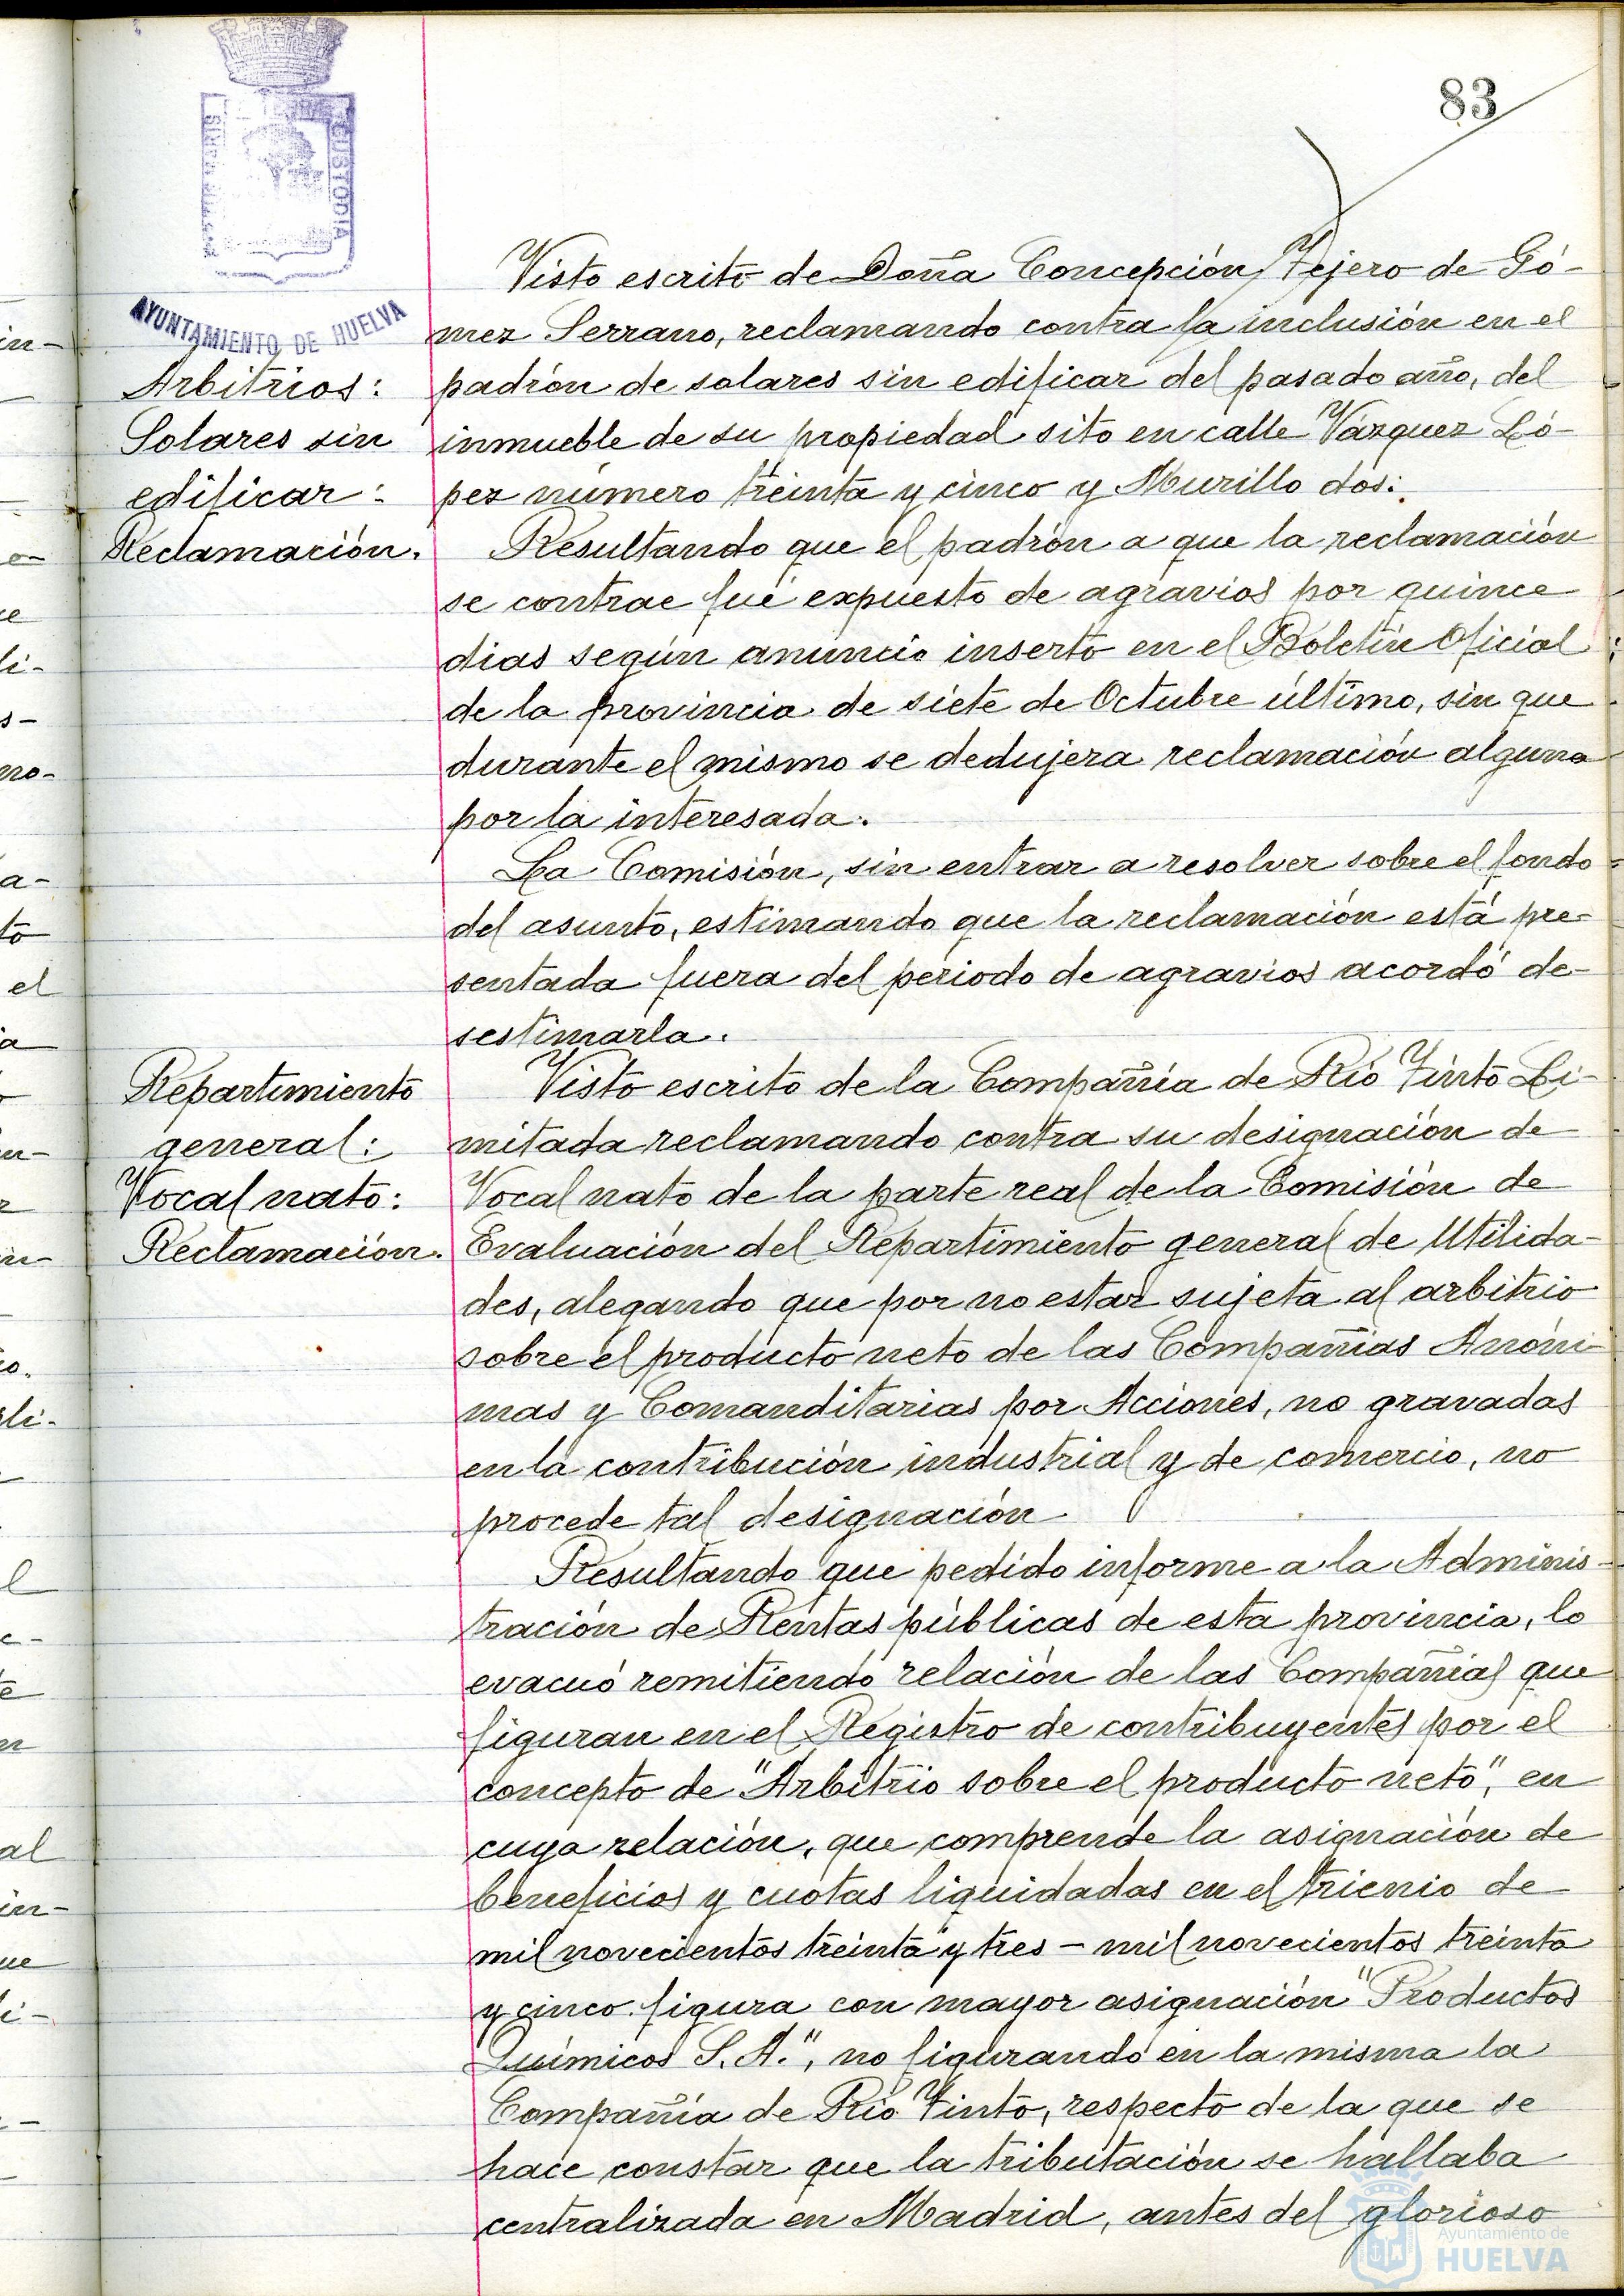 83
CUSTODIA
AYUNTAMIENTO DE HUELVA
Arbitrios:
Solares sin
edificar:
Reclamación.
Visto escrito de Doña Concepción Tejero de Gó-
mez Serrano, reclamando contra la inclusión en el
padrón de solares sin edificar del pasado año, del
inmueble de su propiedad sito en calle Vázquez Ló-
pez número treinta y cinco y Murillo dos:
Resultando que el padrón a que la reclamación
se contrae fué expuesto de agravios por quince
dias según anuncio inserto en el Boletín Oficial
de la provincia de siete de Octubre último, sin que
durante el mismo se dedujera reclamación alguna
por la interesada.
La Comisión, sin entrar a resolver sobre el fondo
del asunto, estimando que la reclamación está pre-
sentada fuera del periodo de agravios acordó de-
sestimarla.
Repartimiento
general:
Vocal nato:
Reclamación.
Visto escrito de la Compañía de Río Tinto Li-
mitada reclamando contra su designación de
Vocal nato de la parte real de la Comisión de
Evaluación del Repartimiento general de Utilida-
des, alegando que por no estar sujeta al arbitrio
sobre el producto neto de las Compañias Anóni-
mas y Comanditarias por Acciones, no gravadas
en la contribución industrial y de comercio, no
procede tal designación
Resultando que pedido informe a la Adminis-
tración de Rentas públicas de esta provincia, lo
evacuó remitiendo relación de las Compañias que
figuran en el Registro de contribuyentes por el
concepto de "Arbitrio sobre el producto neto", en
cuya relación, que comprende la asignación de
beneficios y cuotas liquidadas en el trienio de
mil novecientos treinta y tres - mil novecientos treinta
y cinco figura con mayor asignación "Productos
Químicos S.A.", no figurando en la misma la
Compañía de Río Tinto, respecto de la que se
hace constar que la tributación se hallaba
centralizada en Madrid, antes del glorioso
Ayuntamiento de
HUELVA